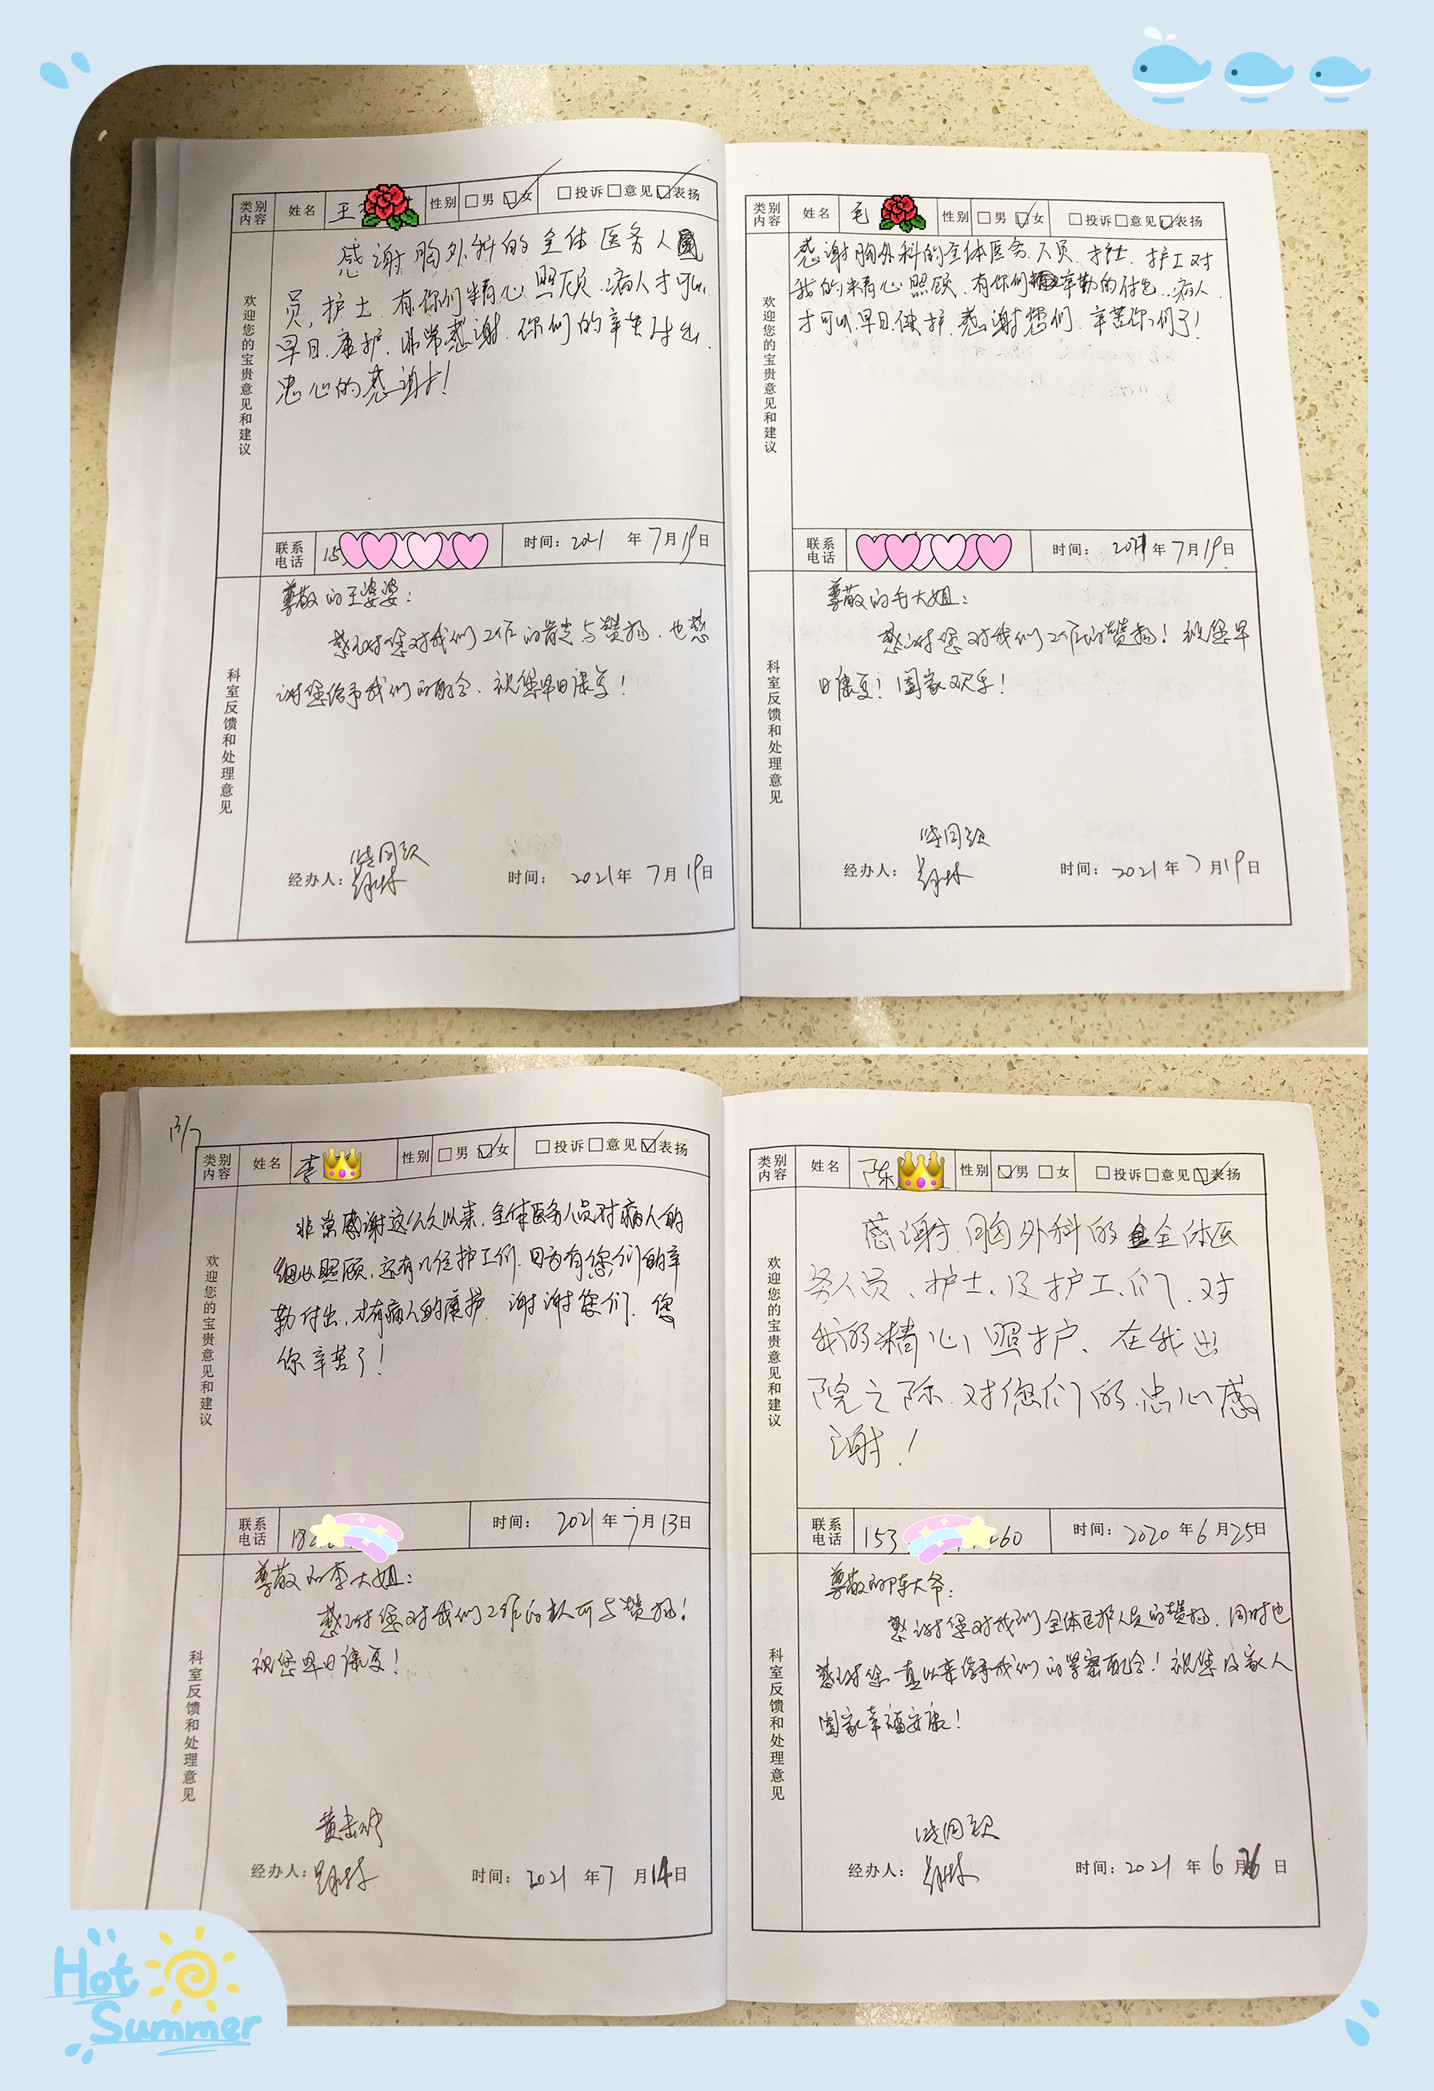 类别内容 姓名 王 性别 □男 ☑女 □投诉 □意见 ☑表扬
欢迎您的宝贵意见和建议
感谢胸外科的全体医务人
员，护士.有你们精心照顾.病人才可以
早日.康护.非常感谢.你们的辛苦付出.
忠心的感谢!
联系电话 153 时间：2021 年 7月19日
科室反馈和处理意见
尊敬的王婆婆：
感谢您对我们工作的肯定与赞扬，也感
谢您给予我们的配合、祝您早日康复！
经办人： 时间：2021年 7月19日
类别内容 姓名 毛 性别 □男 ☑女 □投诉 □意见 ☑表扬
欢迎您的宝贵意见和建议
感谢胸外科的全体医务人员.护士.护工对
我的精心照顾.有你们辛勤的付出.病人.
才可以早日康护.感谢您们.辛苦你们了!
联系电话 时间：2021年7月19日
科室反馈和处理意见
尊敬的毛大姐：
感谢您对我们工作的赞扬！祝您早
日康复！阖家欢乐！
经办人： 时间：2021年7月19日
13/7
类别内容 姓名 李 性别 □男 ☑女 □投诉 □意见 ☑表扬
欢迎您的宝贵意见和建议
非常感谢这么久以来.全体医务人员对病人的
细心照顾.还有几位护工们.因为有您们的辛
勤付出.才有病人的康护.谢谢您们.您
你辛苦了!
联系电话 182 时间：2021年7月13日
科室反馈和处理意见
尊敬的李大姐：
感谢您对我们工作的认可与赞扬！
祝您早日康复！
经办人： 时间：2021 年7 月14日
类别内容 姓名 陈 性别 ☑男 □女 □投诉 □意见 ☑表扬
欢迎您的宝贵意见和建议
感谢.胸外科的全体医
务人员、护士、及护工们.对
我的精心照护、在我出
院之际.对您们的.忠心感
谢!
联系电话 153 60 时间：2020年6月25日
科室反馈和处理意见
尊敬的陈大爷：
感谢您对我们全体医护人员的赞扬，同时也
感谢您一直以来给予我们的紧密配合！祝您及家人
阖家幸福安康！
经办人： 时间：2021 年 6月26日
Hot
Summer